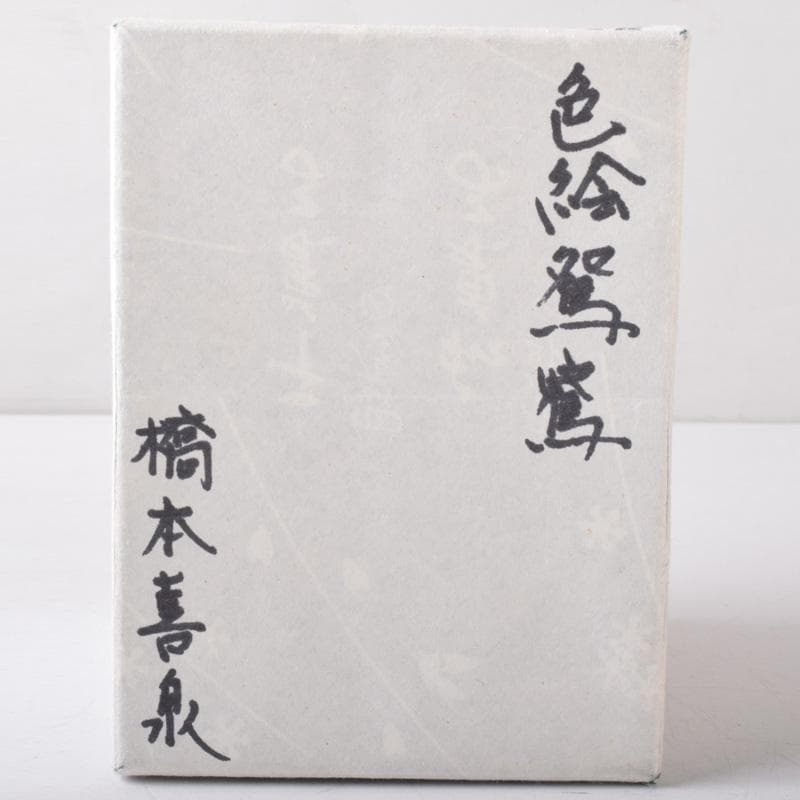 色絵鴛鴦
橋本喜泉